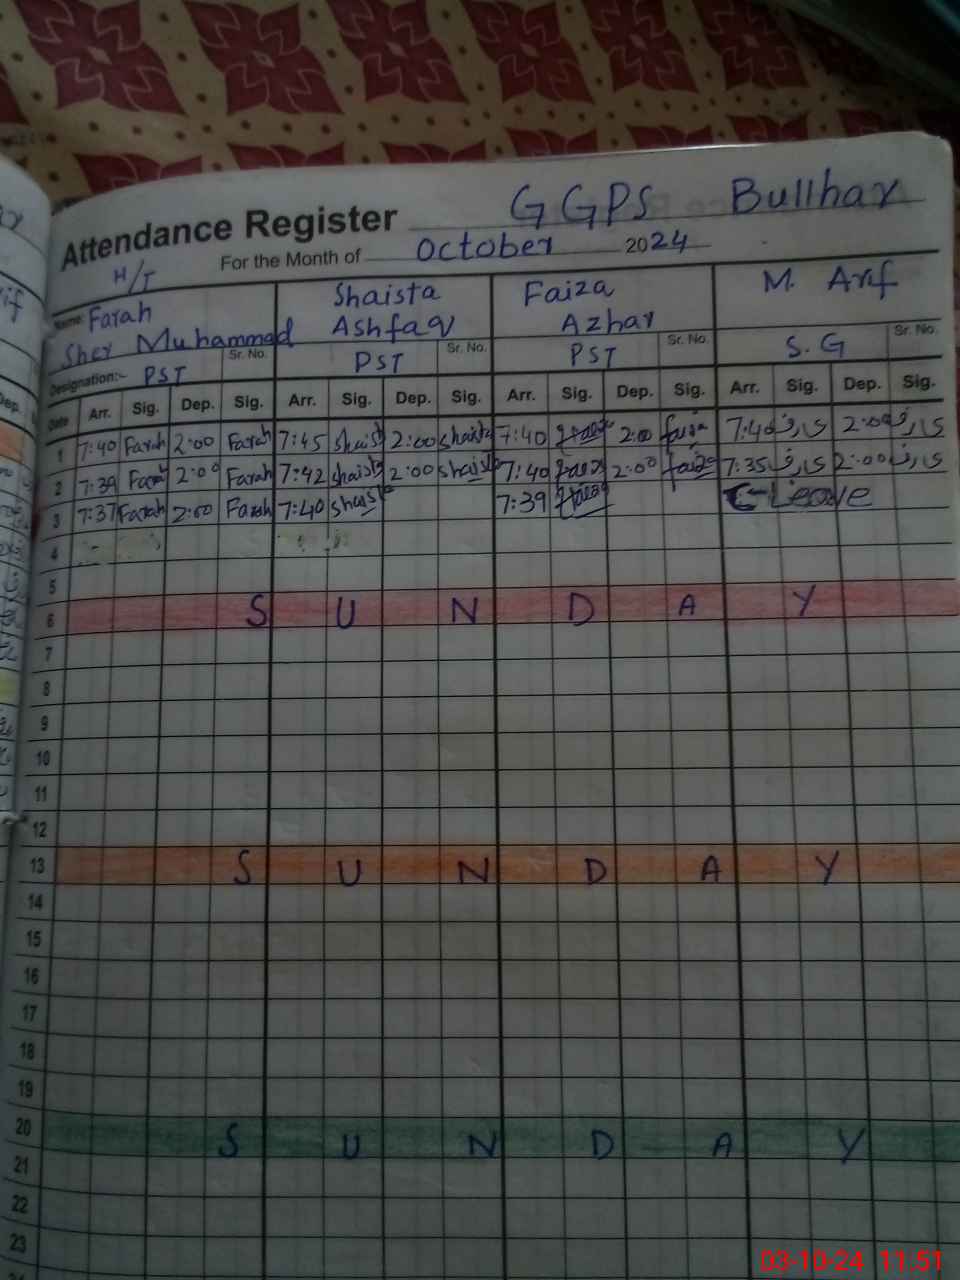 Attendance Register GGPS Bullhar
For the Month of October 2024
H/T
Name: Farah Shaista Faiza M. Arif
Sher Muhammad Ashfaq Azhar
Designation:- PST Sr. No. PST Sr. No. PST Sr. No. S.G Sr. No.
Date Arr. Sig. Dep. Sig. Arr. Sig. Dep. Sig. Arr. Sig. Dep. Sig. Arr. Sig. Dep. Sig.
1 7:40 Farah 2:00 Farah 7:45 Shaista 2:00 Shaista 7:40 2:00 faiza 7:40 عارف 2:00 عارف
2 7:39 Farah 2:00 Farah 7:42 Shaista 2:00 Shaista 7:40 faiza 2:00 faiza 7:35 عارف 2:00 عارف
3 7:37 Farah 2:00 Farah 7:40 Shaista 7:39 C-Leave
4
5
6 SUNDAY
7
8
9
10
11
12
13 SUNDAY
14
15
16
17
18
19
20 SUNDAY
21
22
23
03-10-24 11:51